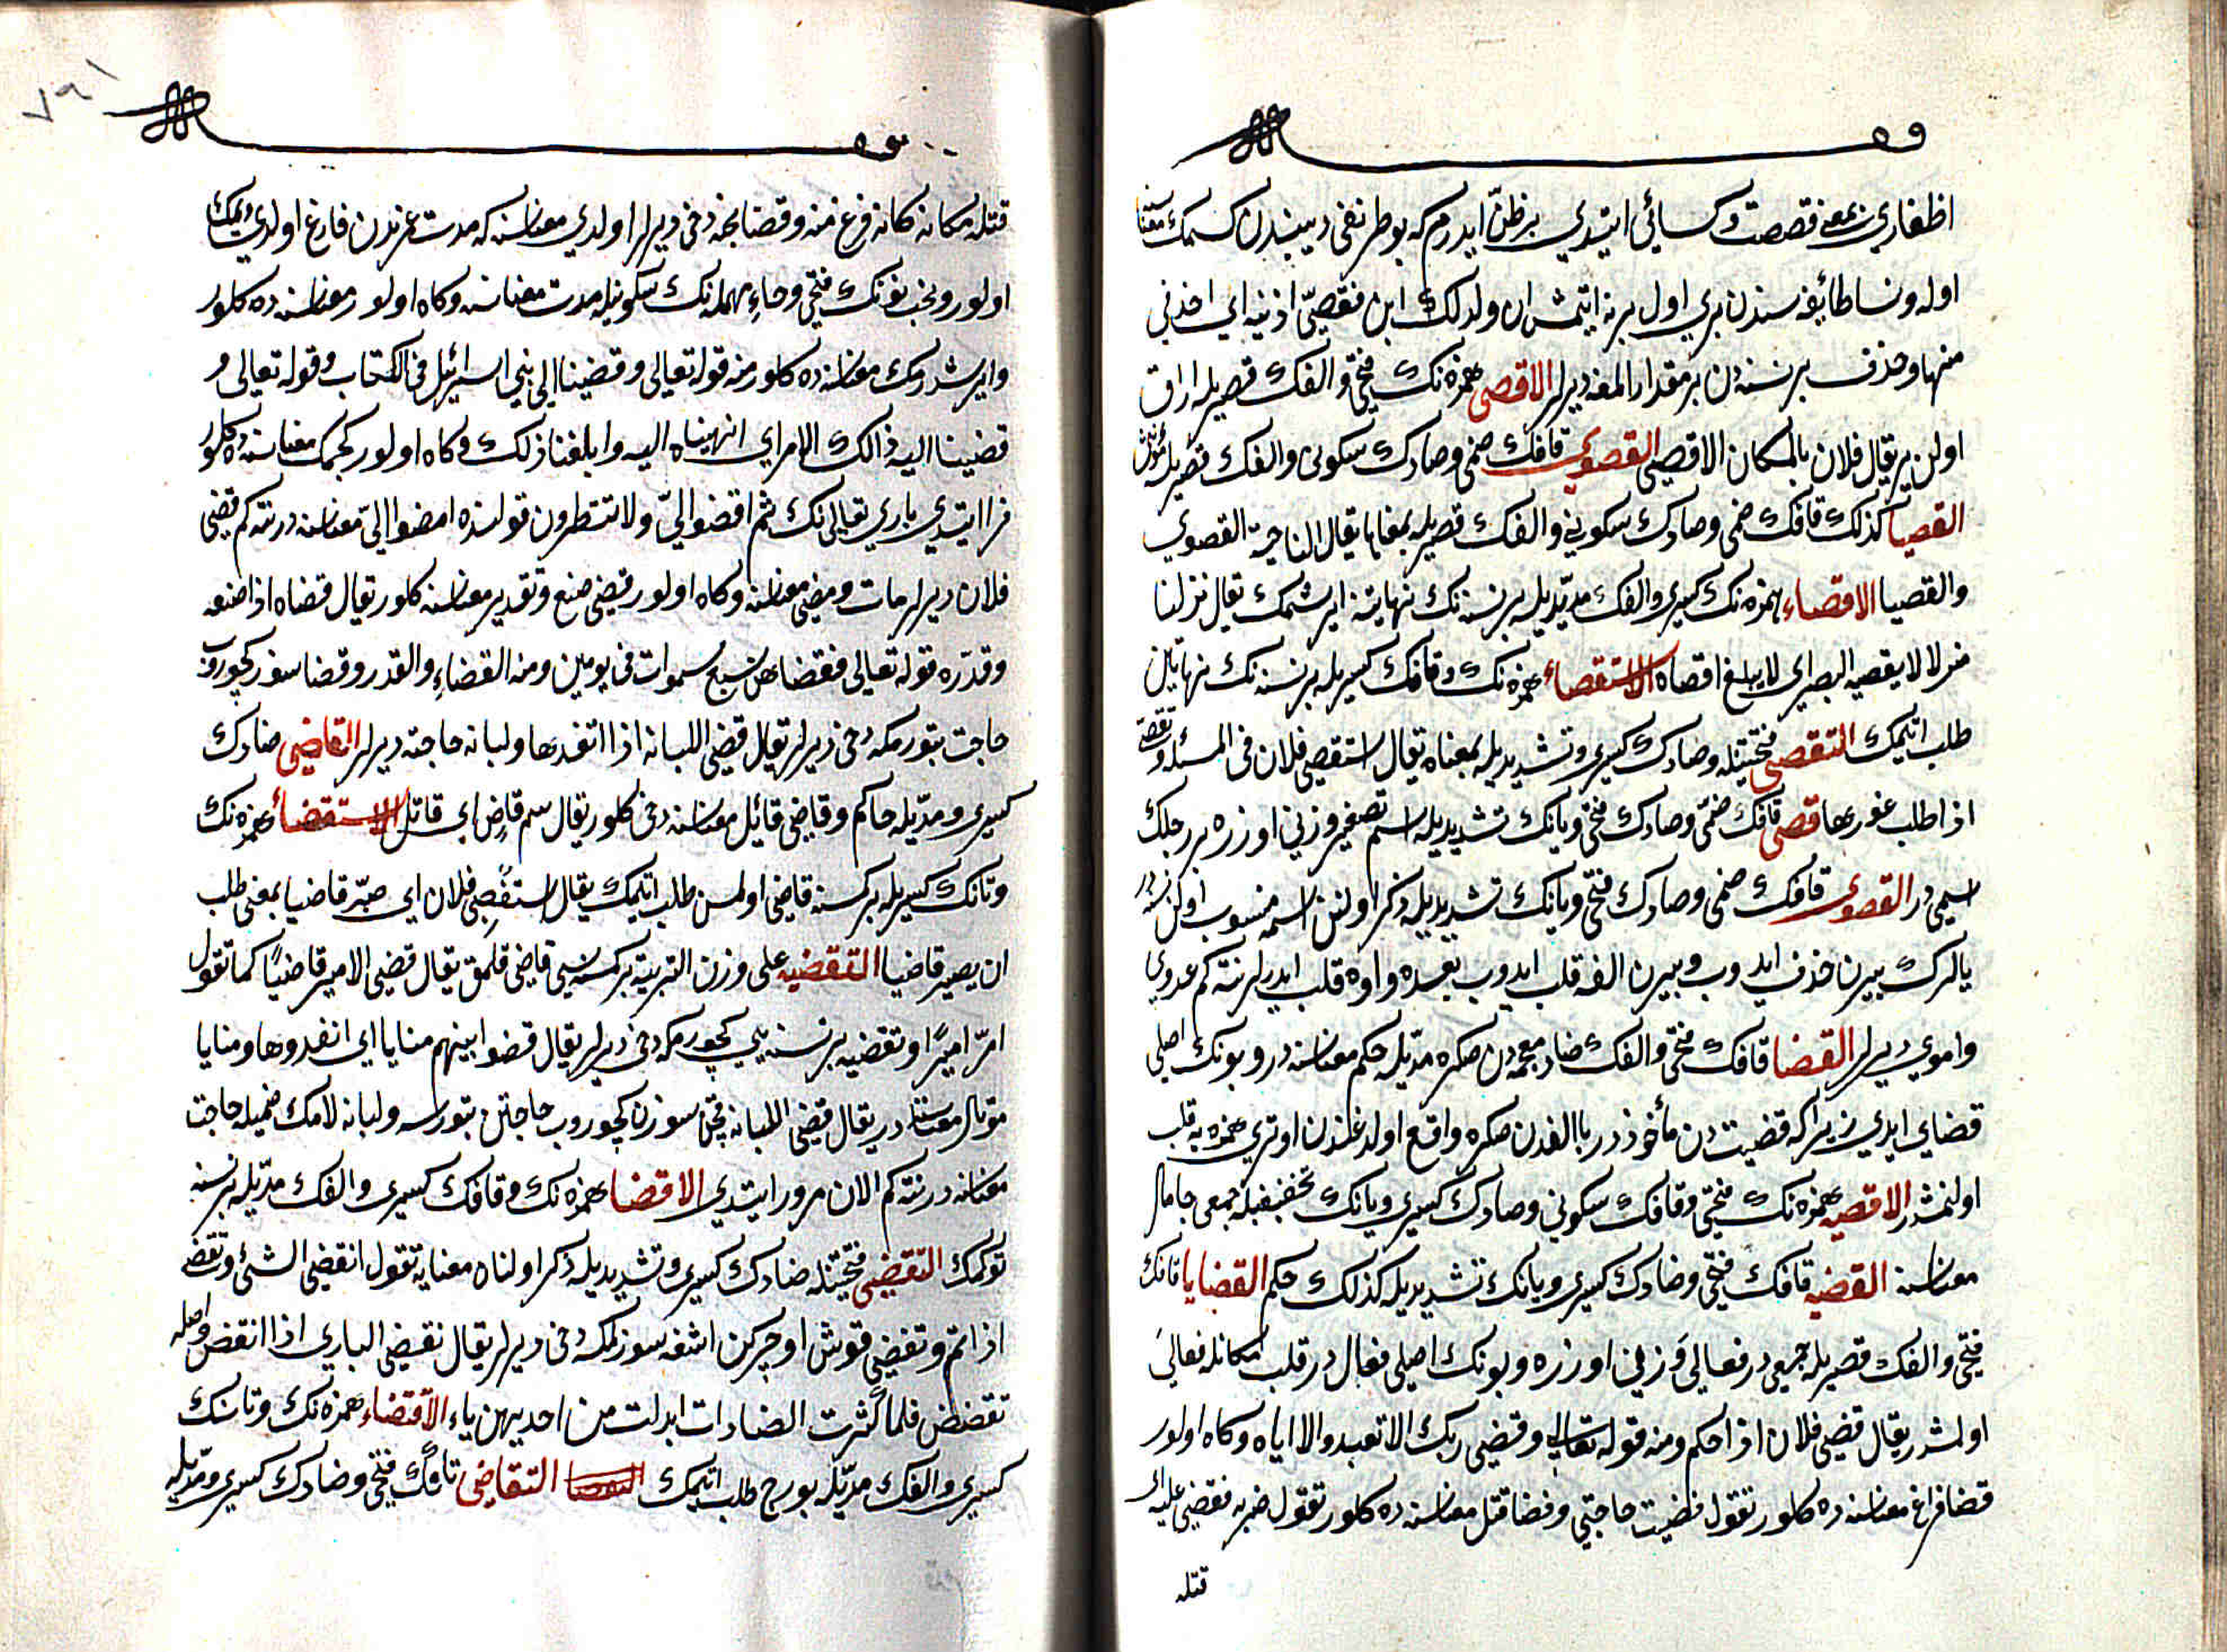 اظفاري بمعنى قصصت وكسائي ايتدي بر ظن ايدرم كه بو طرنغى ديبندن كسمك معناسنه
اوله ونسا طائفه سندن بري اول برينه ايتمش ان ولد لك ابن فقصى اذنيه اي احذفي
منها وحذف بر نسنه دن بر مقدار المغه ديرلر الاقصى همزه نك فتحى والفك قصريله اراق
اولن ير يقال فلان بالمكان الاقصى القصوى قافك ضمى وصادك سكونى والفك قصريله مؤنثى
القصيا كذلك قافك ضمى وصادك سكونى والفك قصريله بمعناها يقال الناحية القصوي
والقصيا الاقصاء همزه نك كسرى والفك مديله بر نسنه نك نهايتنه ايرشمك يقال نزلنا
منزلا لا يقصيه البصر اي لا يبلغ اقصاه الاستقصاء همزه نك وقافك كسريله بر نسنه نك نهايتين
طلب اتمك التقصى فتحتيله وصادك كسرى وتشديديله بمعناه يقال استقصى فلان في المسئله وتقصى
اذا طلب غورها قصى قافك ضمى وصادك فتحى ويانك تشديديله اسم تصغير وزني اوزره بر رجلك
اسمى در القصوى قافك ضمى وصادك فتحى ويانك تشديديله ذكر اولنن اسمه منسوب اولن نسنه در
يالرك بيرين حذف ايدوب وبيرين الفه قلب ايدوب بعده واوه قلب ايدرلر نته كم عدوي
واموي ديرلر القضا قافك فتحى والفك ضاد معجمه دن صكره مديله حكم معناسنه در وبونك اصلي
قضاي ايدي زيرا كه قضيت دن مأخوذدر يا الفدن صكره واقع اولدغندن اوتري همزه يه قلب
اولنمشدر الاقضيه همزه نك فتحى وقافك سكوني وضادك كسرى ويانك تخفيفيله جمعى جامال
معناسنه القضيه قافك فتحى وضادك كسرى ويانك تشديديله كذلك حكم القضايا قافك
فتحى والفك قصريله جمعيدر فعالى وزني اوزره وبونك اصلي فعال در قلب مكانله فعالى
اولمشدر يقال قضى فلان اذا حكم ومنه قوله تعالى وقضى ربك الا تعبدوا الا اياه وكاه اولور
قضا فراغ معناسنه ده كلور تقول قضيت حاجتي وقضا قتل معناسنه ده كلور تقول ضربه فقضى عليه اي
قتله
قتله مكانه كانه فرغ منه وقضا نحبه دخى ديرلر اولدي معناسنه كه مدت عمرندن فارغ اولدي ديمك
اولور ونحب نونك فتحى وحاء مهمله نك سكونيله مدت معناسنه وكاه اولور معناسنه ده كلور
وايرشدرمك معناسنه ده كلور منه قوله تعالى وقضينا الى بني اسرائيل في الكتاب وقوله تعالى و
قضينا اليه ذالك الامر اي انهيناه اليه وابلغنا ذلك وكاه اولور كچمك معناسنه ده كلور
فرا ايتدي باري تعالى نك ثم اقضوا الي ولا تنظرون قولنده امضوا الي معناسنه در نته كم قضى
فلان ديرلر مات ومضى معناسنه وكاه اولور قضى صنع وتقدير معناسنه كلور يقال قضاه اذا صنعه
وقدره قوله تعالى فقضاهن سبع سموات في يومين ومنه القضاء والقدر وقضا سوز كچوروب
حاجت بتورمكه دخى ديرلر يقال قضى اللبانه اذا انفدها ولبانه حاجته ديرلر القاضى ضادك
كسرى ومديله حاكم وقاضى قاتل معناسنه دخى كلور يقال سم قاض اي قاتل الاستقضاء همزه نك
وتانك كسريله بر كمسنه قاضى اولمسن طلب اتمك يقال استقضى فلان اي صير قاضيا بمعنى طلب
ان يصير قاضيا التقضيه على وزن التربيه بر كمسنه يى قاضى قلمق يقال قضى الامير قاضيا كما تقول
امر اميرا وتقضيه بر نسنه يى كچورمكه دخى ديرلر يقال قضوا بينهم منايا اي انفدوها ومنايا
موتلر معناسنه در يقال قضى اللبانه يعنى سوزن كچوروب حاجتن بتورسه ولبانه لامك ضميله حاجت
معناسنه در نته كم الان مرور ايتدي الاقضا همزه نك وقافك كسرى والفك مديله بر نسنه
توكنمك التقضى فتحتيله ضادك كسرى وتشديديله ذكر اولنان معنايه تقول انقضى الشئ وتقضى
اذا تم وتقضى قوش اوچركن اشغه سوزلمكه دخى ديرلر يقال تقضى البازي اذا انقض واصله
تقضض فلما كثرت الضادات ابدلت من احديهن ياء الاقتضاء همزه نك وتانك
كسرى والفك مديله بورج طلب اتمك التقاضى تانك فتحى وضادك كسرى ومديله